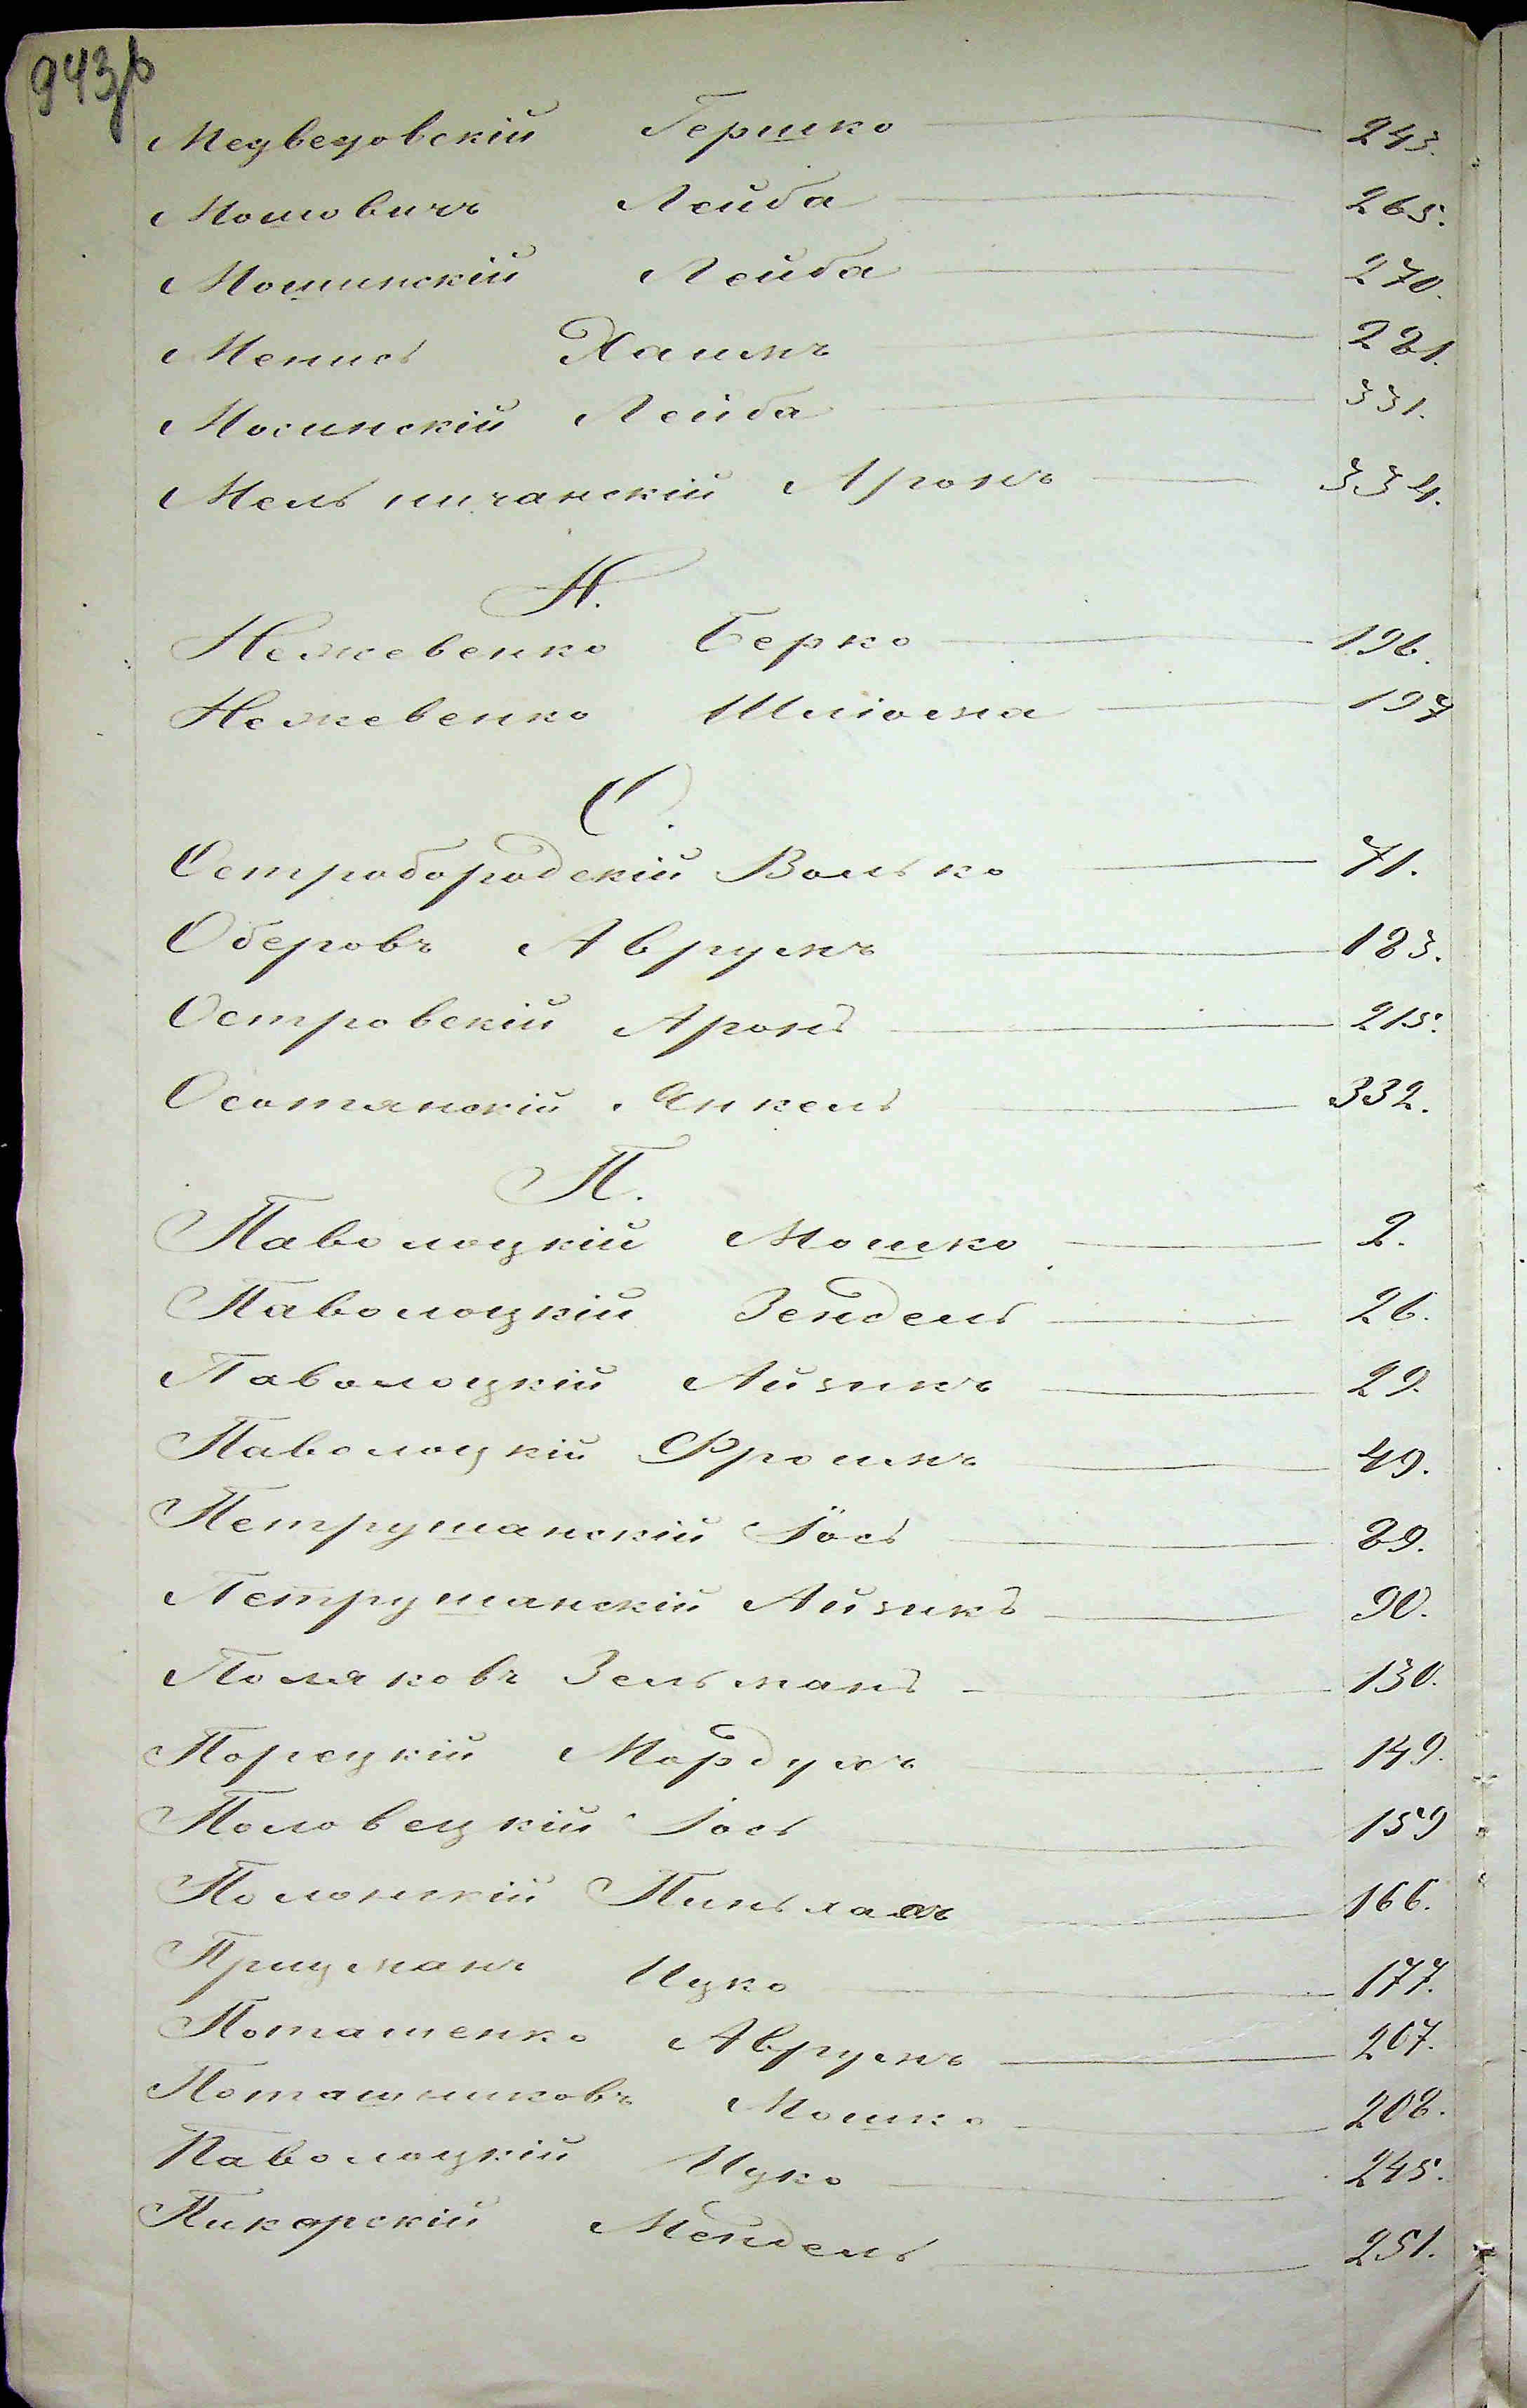 943об
Медведовскій Гершко 243.
Мошовичъ Лейба 265.
Мошинскій Лейба 270.
Менись Хаимъ 281.
Мосинскій Лейба 331.
Мельничанскій Аронъ 334.
Н.
Нежевенко Берко 196.
Нежевенко Шліома 197
О.
Остробородскій Волько 71.
Оберовъ Аврумъ 183.
Островскій Аронъ 215.
Осотянскій Янкель 332.
П.
Паволоцкій Мошко 2.
Паволоцкій Зендель 26.
Паволоцкій Айзикъ 29.
Паволоцкій Фроимъ 49.
Петрушанскій Іось 89.
Петрушанскій Айзикъ 90.
Поляковъ Зельманъ 130.
Порецкій Мордухъ 149.
Половецкій Іось 159
Полонскій Пиньхасъ 166.
Прицманъ Ицко 177.
Поташенко Аврумъ 207.
Поташниковъ Мошко 208.
Паволоцкій Ицко 245.
Пикарскій Мендель 251.